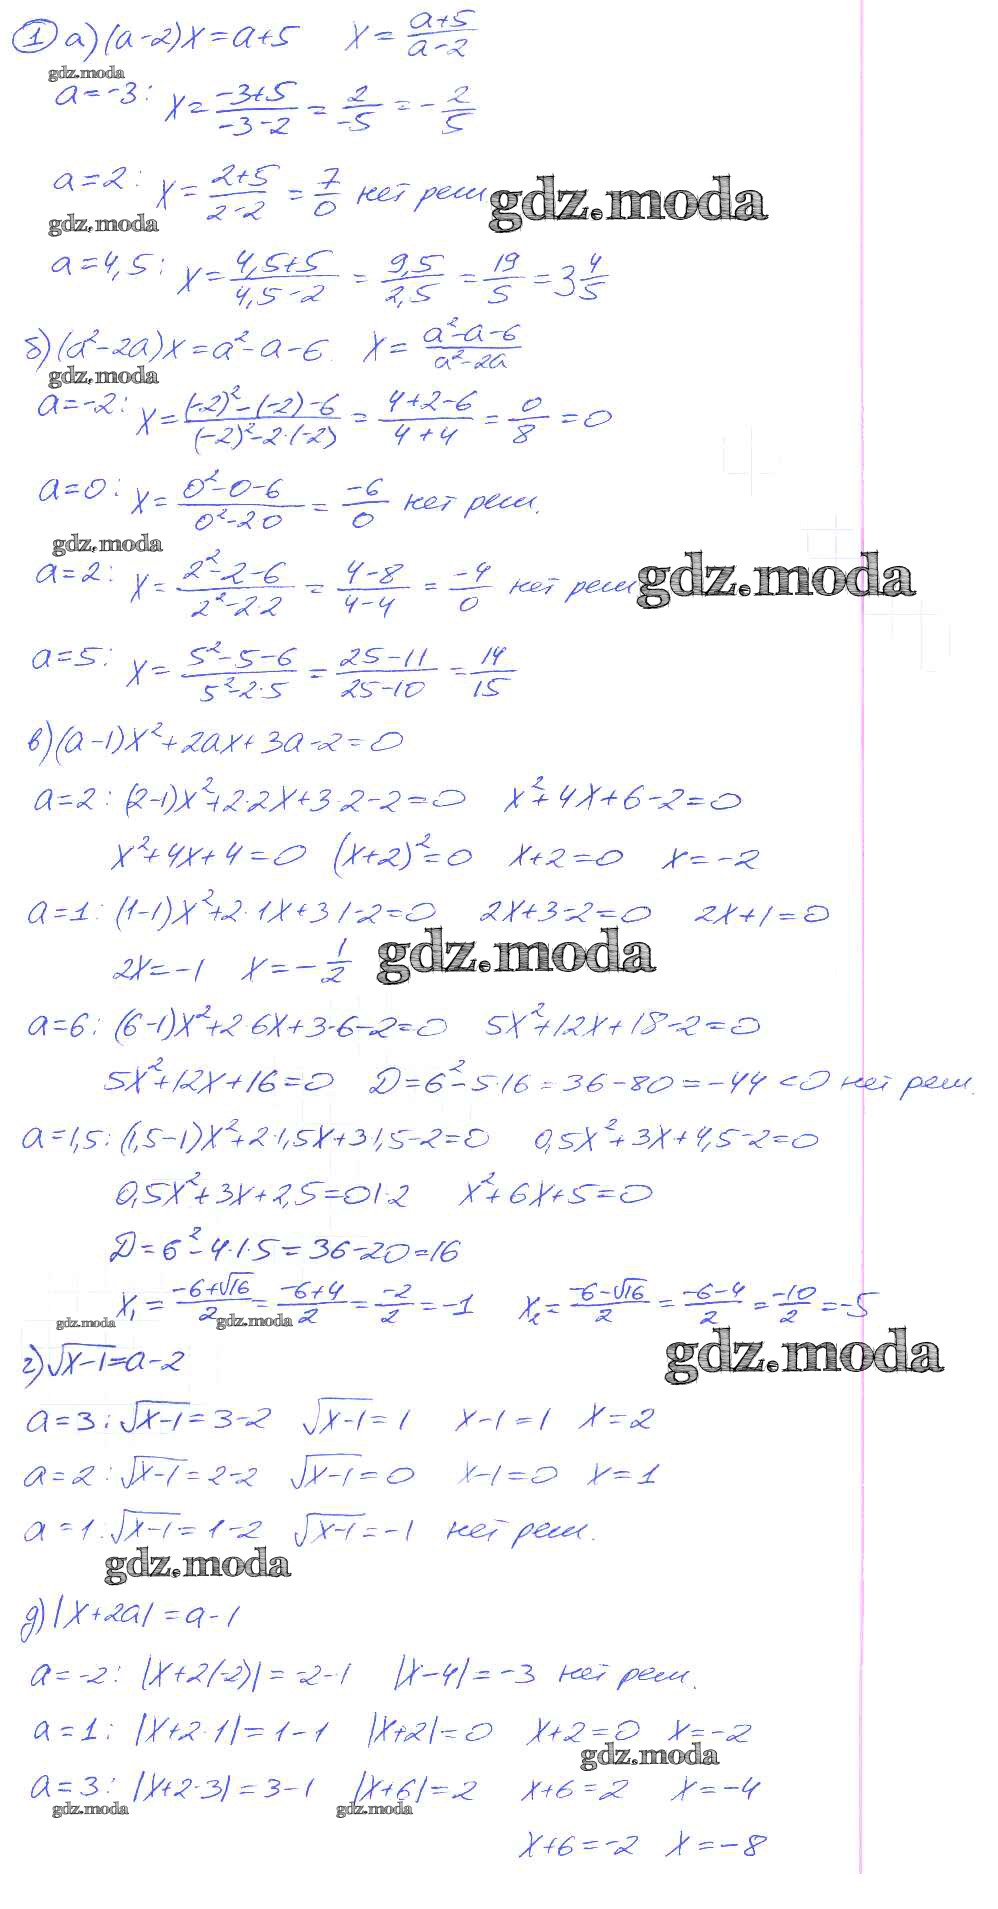 1 а) (a-2)x = a+5   x = (a+5)/(a-2)
gdz.moda
a = -3: x = (-3+5)/(-3-2) = 2/-5 = -2/5
a = 2: x = (2+5)/(2-2) = 7/0 нет реш.
gdz.moda
gdz.moda
a = 4,5: x = (4,5+5)/(4,5-2) = 9,5/2,5 = 19/5 = 3 4/5
б) (a²-2a)x = a²-a-6   x = (a²-a-6)/(a²-2a)
gdz.moda
a = -2: x = ((-2)²-(-2)-6)/((-2)²-2·(-2)) = (4+2-6)/(4+4) = 0/8 = 0
a = 0: x = (0²-0-6)/(0²-2·0) = -6/0 нет реш.
gdz.moda
a = 2: x = (2²-2-6)/(2²-2·2) = (4-8)/(4-4) = -4/0 нет реш
gdz.moda
a = 5: x = (5²-5-6)/(5²-2·5) = (25-11)/(25-10) = 14/15
в) (a-1)x²+2ax+3a-2=0
a=2: (2-1)x²+2·2x+3·2-2=0   x²+4x+6-2=0
x²+4x+4=0   (x+2)²=0   x+2=0   x=-2
a=1: (1-1)x²+2·1x+3·1-2=0   2x+3-2=0   2x+1=0
2x=-1   x=-1/2
gdz.moda
a=6: (6-1)x²+2·6x+3·6-2=0   5x²+12x+18-2=0
5x²+12x+16=0   D=6²-5·16=36-80=-44<0 нет реш.
a=1,5: (1,5-1)x²+2·1,5x+3·1,5-2=0   0,5x²+3x+4,5-2=0
0,5x²+3x+2,5=0|·2   x²+6x+5=0
D=6²-4·1·5=36-20=16
x₁=(-6+√16)/2=(-6+4)/2=-2/2=-1   x₂=(-6-√16)/2=(-6-4)/2=-10/2=-5
gdz.moda
gdz.moda
gdz.moda
г) √(x-1)=a-2
a=3: √(x-1)=3-2   √(x-1)=1   x-1=1   x=2
a=2: √(x-1)=2-2   √(x-1)=0   x-1=0   x=1
a=1: √(x-1)=1-2   √(x-1)=-1   нет реш.
gdz.moda
д) |x+2a|=a-1
a=-2: |x+2(-2)|=-2-1   |x-4|=-3   нет реш.
a=1: |x+2·1|=1-1   |x+2|=0   x+2=0   x=-2
gdz.moda
a=3: |x+2·3|=3-1   |x+6|=2   x+6=2   x=-4
gdz.moda
gdz.moda
x+6=-2   x=-8